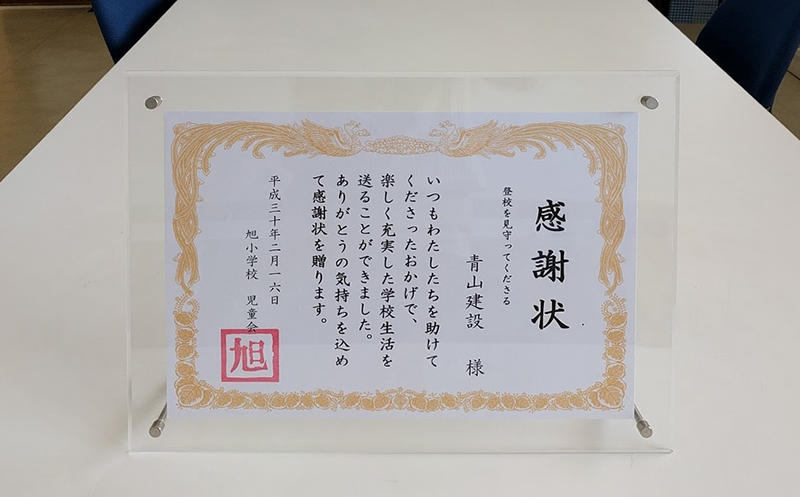 感謝状
登校を見守ってくださる
青山建設 様
いつもわたしたちを助けて
くださったおかげで、
楽しく充実した学校生活を
送ることができました。
ありがとうの気持ちを込め
て感謝状を贈ります。
平成三十年二月一六日
旭小学校 児童会
旭